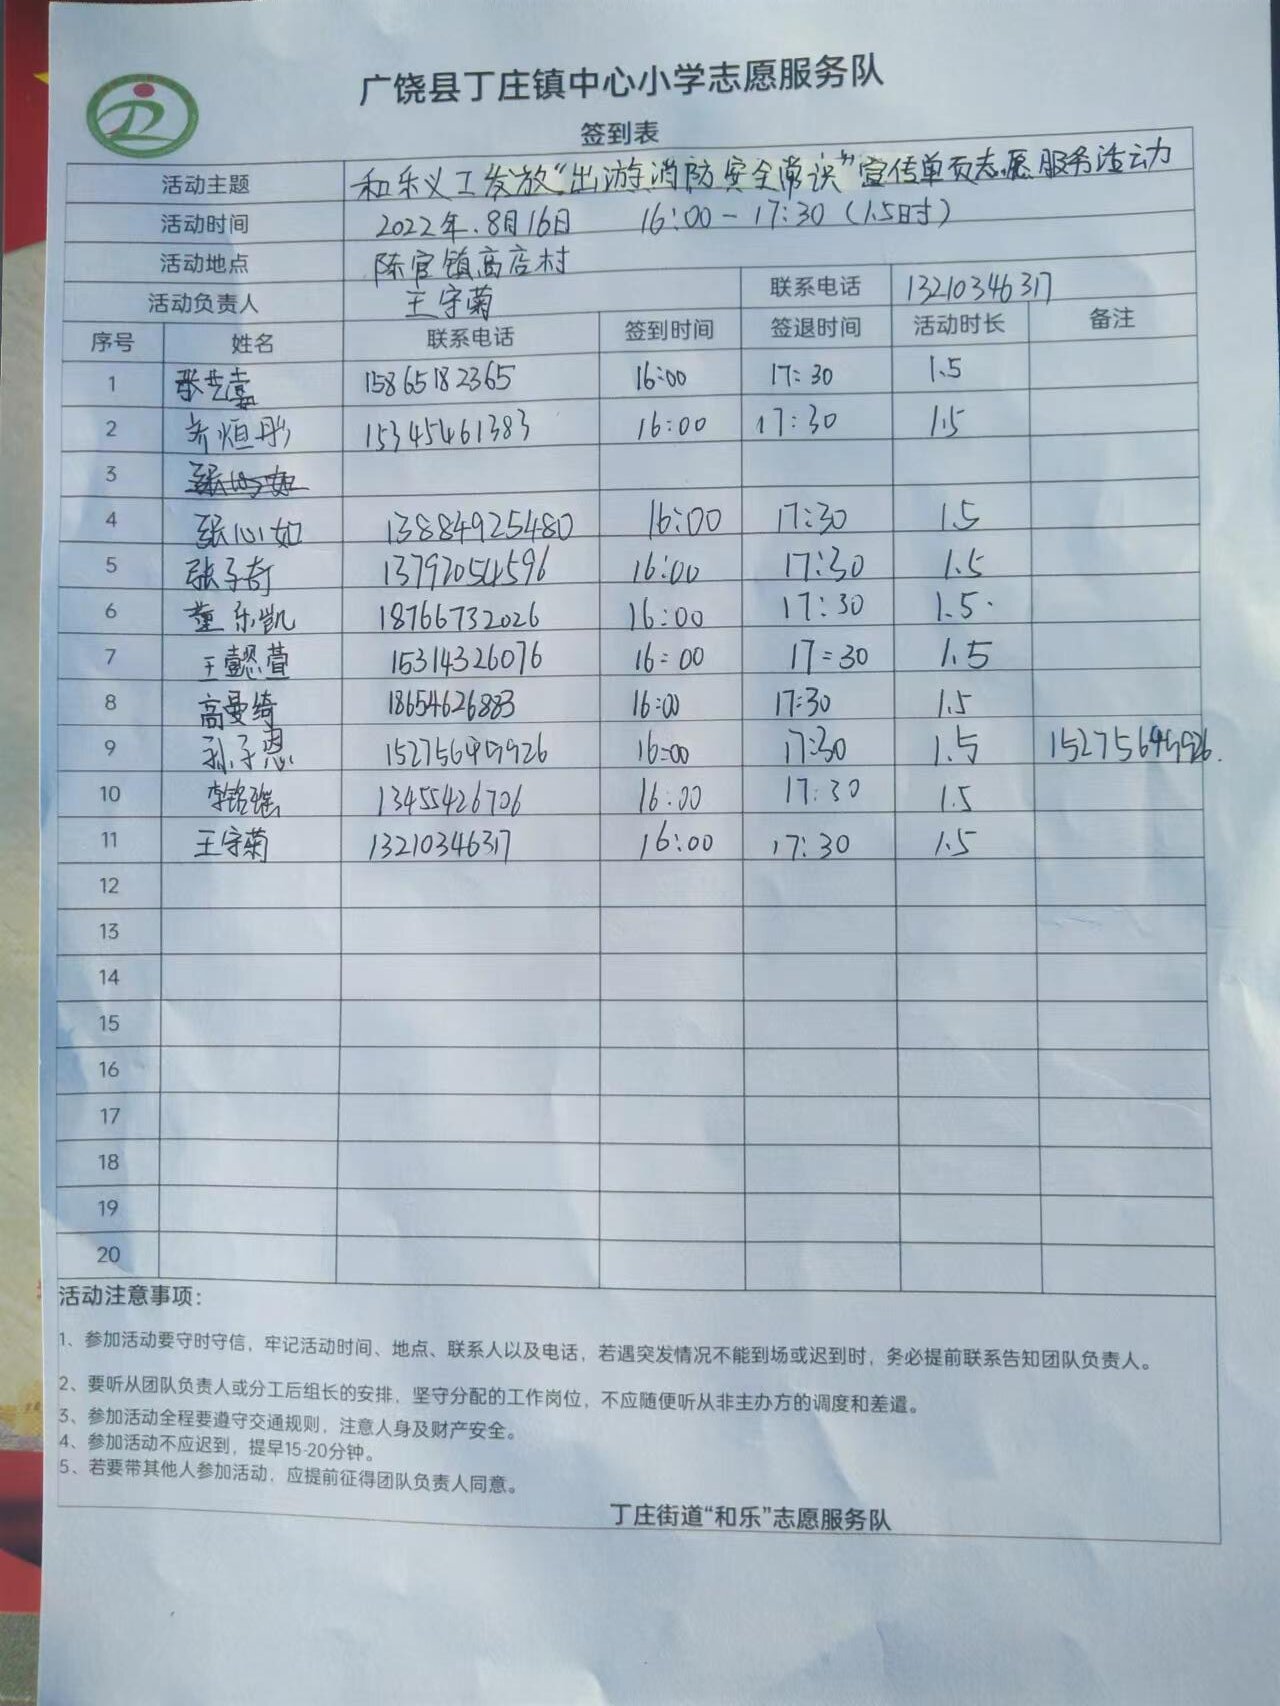 广饶县丁庄镇中心小学志愿服务队
签到表
活动主题 和乐义工发放“出游消防安全常识”宣传单页志愿服务活动
活动时间 2022年.8月16日 16:00-17:30(1.5时)
活动地点 陈官镇高店村
活动负责人 王守菊 联系电话 13210346317
序号 姓名 联系电话 签到时间 签退时间 活动时长 备注
1 张艺馨 15865182365 16:00 17:30 1.5
2 齐烜彤 15345461383 16:00 17:30 1.5
3
4 张心如 13884925480 16:00 17:30 1.5
5 张子奇 13792054596 16:00 17:30 1.5
6 董乐凯 18766732026 16:00 17:30 1.5.
7 王懿萱 15314326076 16:00 17:30 1.5
8 高曼绮 18654626883 16:00 17:30 1.5
9 孙子恩 16:00 17:30 1.5
10 李铭瑶 13455426706 16:00 17:30 1.5
11 王守菊 13210346317 16:00 17:30 1.5
12
13
14
15
16
17
18
19
20
活动注意事项：
1、参加活动要守时守信，牢记活动时间、地点、联系人以及电话，若遇突发情况不能到场或迟到时，务必提前联系告知团队负责人。
2、要听从团队负责人或分工后组长的安排，坚守分配的工作岗位，不应随便听从非主办方的调度和差遣。
3、参加活动全程要遵守交通规则，注意人身及财产安全。
4、参加活动不应迟到，提早15-20分钟。
5、若要带其他人参加活动，应提前征得团队负责人同意。
丁庄街道“和乐”志愿服务队